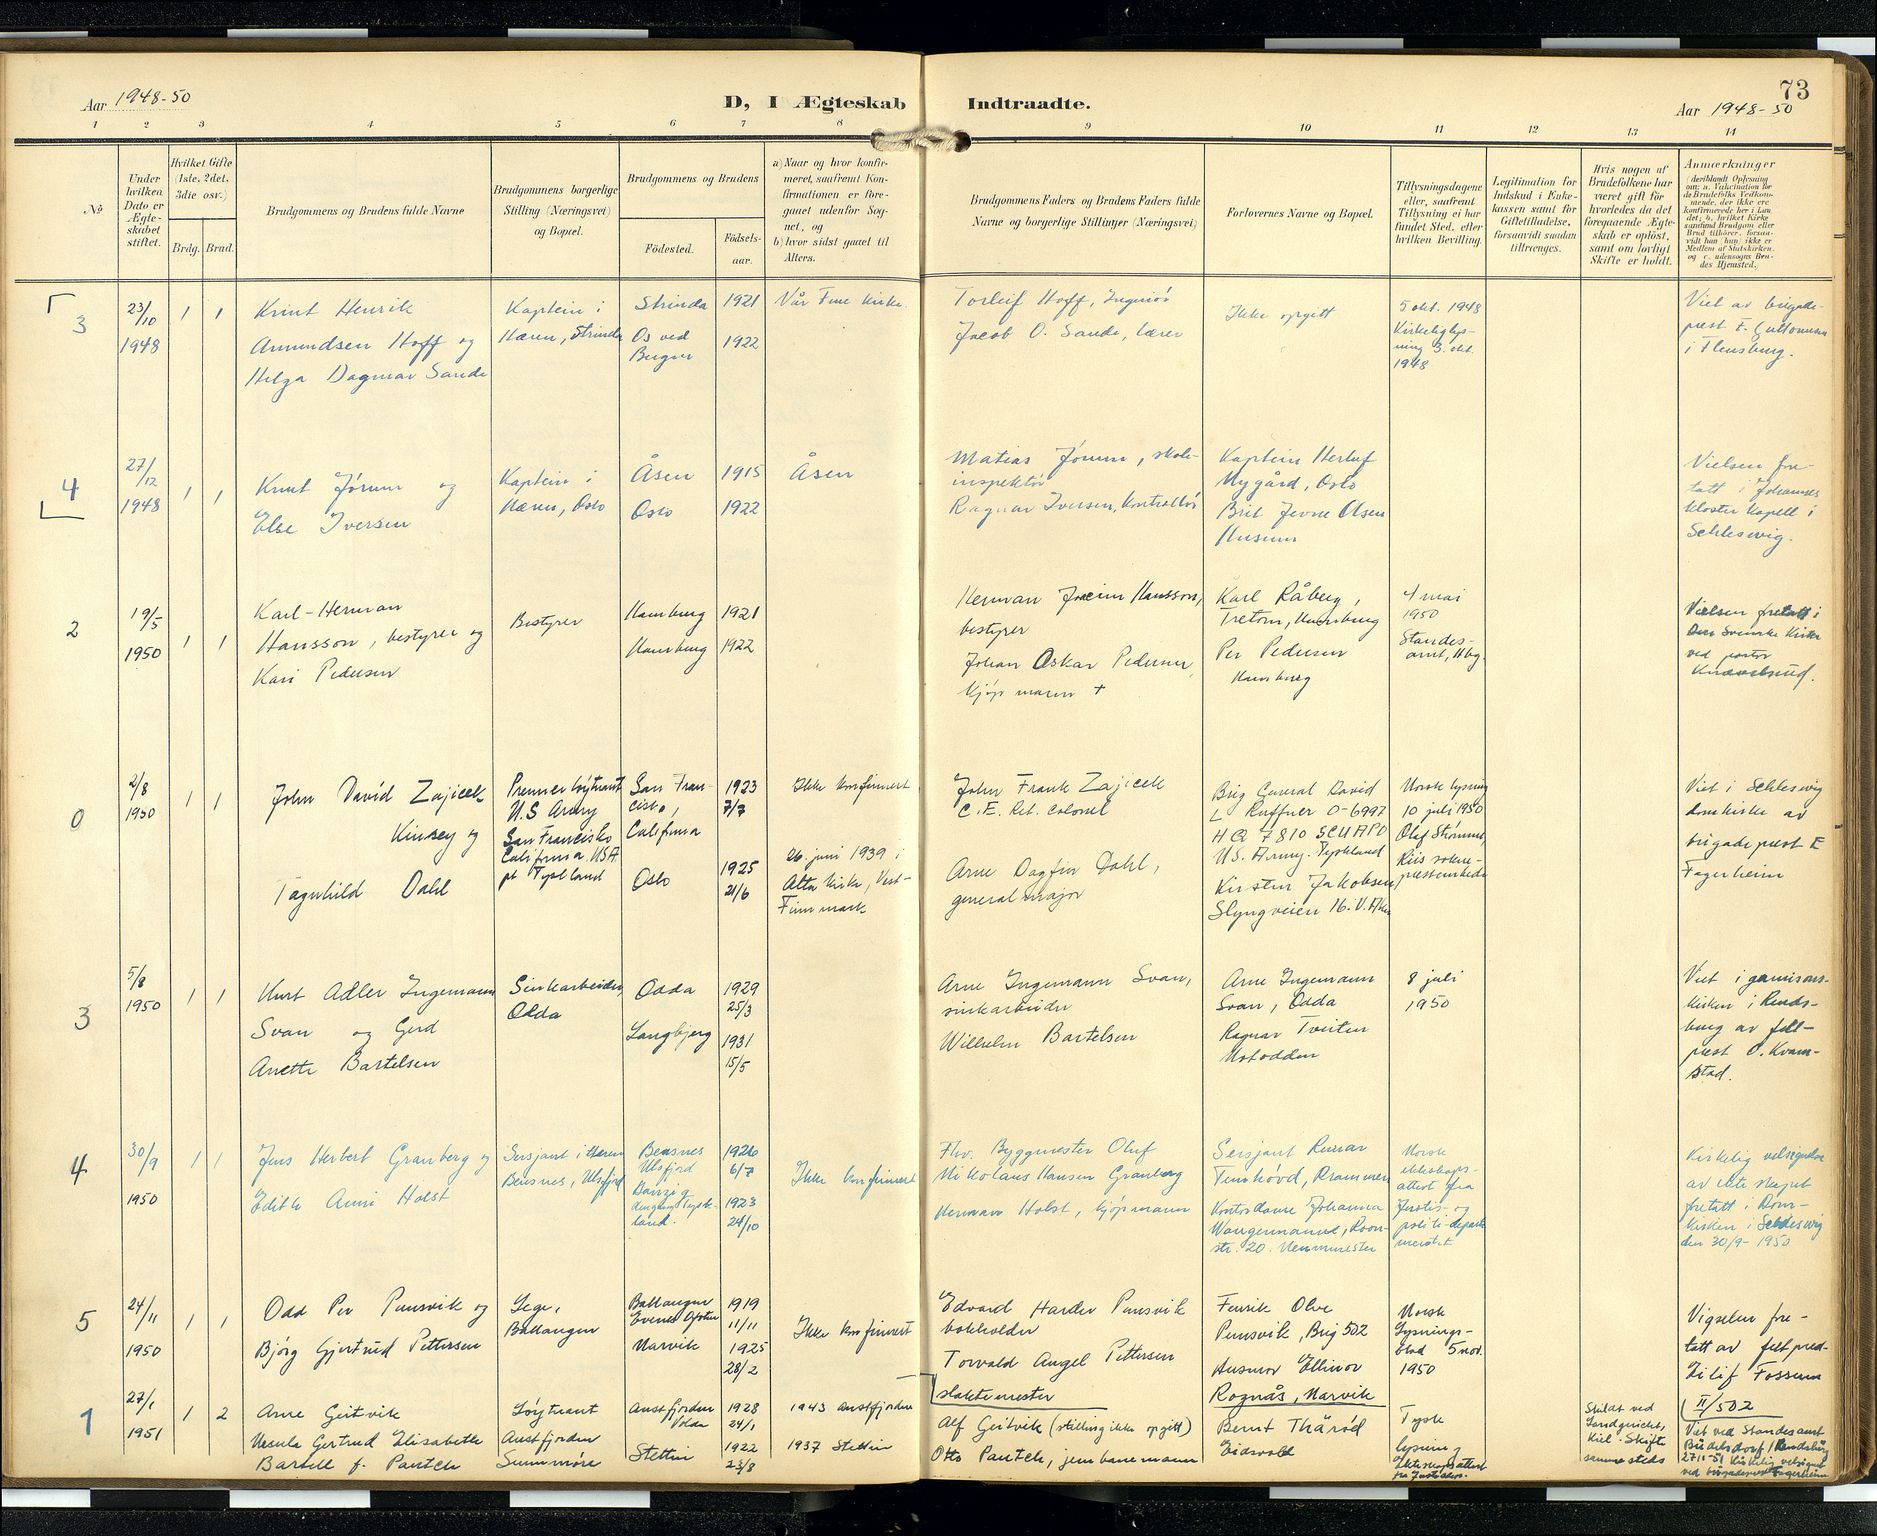 Aar 1948-50
D, I Ægteskab
Indtraadte.
73
Aar 1948-50
1 2 3 4 5 6 7 8 9 10 11 12 13 14
No
Under
hvilken
Dato er
Ægte-
skabet
stiftet.
Hvilket Gifte
(1ste, 2det,
3die osv.)
Brdg. Brud.
Brudgommens og Brudens fulde Navne
Brudgommens borgerlige
Stilling (Næringsvei)
og Bopæl.
Brudgommens og Brudens
Födested.
Födsels-
aar.
a) Naar og hvor konfir-
meret, saafremt Kon-
firmationen er fore-
gaaet udenfor Sog-
net, og
b) hvor sidst gaaet til
Alters.
Brudgommens Faders og Brudens Faders fulde
Navne og borgerlige Stillinger (Næringsvei)
Forlovernes Navne og Bopæl.
Tillysningsdagene
eller, saafremt
Tillysning ei har
fundet Sted, efter
hvilken Bevilling.
Legitimation for
Indskud i Enke-
kassen samt for
Giftetilladelse,
forsaavidt saadan
tiltrænges.
Hvis nogen af
Brudefolkene har
været gift før
hvorledes da det
foregaaende Ægte-
skab er opløst,
samt om lovligt
Skifte er holdt.
Anmærkninger
(deriblandt Oplysning
om: a. Vakcination for
de Brudefolks Vedkom-
mende, der ikke ere
konfirmerede her i Lan-
det; b. hvilket Kirke
samfund Brudgom eller
Brud tilhører, forsaa-
vidt han (hun) ikke er
Medlem af Statskirken,
og c. udensogns Bru-
des Hjemsted.)
3
23/10
1948
1 1
Knut Henrik
Amundsen Hoff og
Helga Dagmar Sande
Kaptein i
Hæren, Strinda
Strinda 1921
Os ved
Bergen 1922
Vår Frue Kirke.
Torleif Hoff, Ingeniør
Jacob O. Sande, lærer
Ikke opgitt
5 okt. 1948
Kirkelig lys-
ning 3. okt.
1948
Viet av brigade-
prest F. Guttormsen
i Flensburg.
4
27/12
1948
1 1
Knut Jörum og
Else Iversen
Kaptein i
Hæren, Oslo
Åsen 1915
Oslo 1922
Åsen
Matias Jörum, skole-
inspektör
Ragnar Iversen, Kontrollör
Kaptein Herluf
Nygård, Oslo
Brit Jevne Olsen
Husum
Vielsen fore-
tatt i Johannes
kloster kapell i
Schleswig.
2
19/5
1950
1 1
Karl-Herman
Hansson, bestyrer og
Kari Pedersen
Bestyrer
Hamburg 1921
Hamburg 1922
Herman Joacim Hansson,
bestyrer
Johan Oskar Pedersen,
kjöpmann +
Karl Råberg,
Tretom, Hamburg
Per Pedersen
Hamburg
4 mai
1950
Standes-
amt, Hbg.
Vielsen foretatt i
Den Svenske Kirke
ved pastor
0
2/8
1950
1 1
John David Zajicek
Kinsey og
Tagnhild Dahl
Premierlöytnant
U.S Army
San Francisko
California, USA
pt Tyskland
San Fran-
cisko,
California
1923
7/7
Oslo 1925
21/6
Ikke konfirmert
26. juni 1939 i
Alta Kirke, Vest-
Finnmark
John Frank Zajicek
C.E. Ret. colonel
Arne Dagfin Dahl,
generalmajor
Brig General David
L Ruffner O-6997
HQ 7810 SCU APO
US. Army. Tyskland
Kirsten Jakobsen,
Slyngveien 16. V. Aker
Norsk lysning
10 juli 1950
Olaf Strömme,
Riis sokne-
prestembede
Viet i Schleswig
domkirke av
brigadeprest E
Fagerheim
3
5/8
1950
1 1
Kurt Adler Ingemann
Svan og Gerd
Anette Bartelsen
Sinkarbeider,
Odda
Odda 1929
25/3
Langbjerg 1931
15/5
Arne Ingemann Svan,
sinkarbeider
Wilhelm Bartelsen
Arne Ingemann
Svan, Odda
Ragnar Tveiten
Notodden
8 juli
1950
Viet i garnisons-
kirken i Rends-
burg av felt-
prest O. Kvam-
stad.
4
30/9
1950
1 1
Jens Herbert Granberg og
Edith Anni Holst
Sersjant i Hæren
Bensnes, Ulsfjord
Bensnes
Ulsfjord
1926
6/7
Danzig
Tysk-
land.
1923
24/10
Ikke konfirmert
Fhv. Byggmester Oluf
Nikolaus Hansen Granberg
Herman Holst, kjöpmann
Sersjant Reinar
Tennhövd, Drammen
Kontordame Johanna
Wangermannd, Roon-
str. 20. Neumünster
Norsk
ekteskaps-
attest fra
Justis- og
politi-departe
mentet
Kirkelig velsignelse
av ekteskapet
foretatt i Dom-
kirken i Schleswig
den 30/9-1950
5
24/11
1950
1 1
Odd Per Pensvik og
Björg Gjertrud Pettersen
Lege,
Ballangen
Ballangen
Evenes Ofoten
1919
11/11
Narvik 1925
28/2
Ikke konfirmert
Edvard Harder Pensvik
bokholder
Torvald Angel Pettersen
slaktemester
Fenrik Olve
Pensvik, Brig 502
Husmor Ellinor
Rognås, Narvik
Norsk
Lysnings-
blad 5 nov.
1950
Vigselen fore-
tatt av feltpred-
Eilif Fossum
II/502
1
27/1
1951
1 2
Arne Geitvik
Ursula Gertrud Elisabeth
Bartell f. Pantel
Löytnant
Austfjorden
Sunnmöre
Austfjorden
Volda
1928
24/1
Stettin 1922
23/8
1943 Austfjorden
1937 Stettin
Alf Geitvik (stilling ikke opgitt)
Otto Pantel, jernbanemann
Bernt Thåröd
Eidsvold
Tysk
lysning
ekteskapsattest
fra Justisdep.
Skilt ved
Landgericht,
Kiel. Skifte
samme steds
Viet ved Standesamt
Büdelsdorf/Rendsburg
27/1-51 Kirkelig velsignet
ved brigadeprest Fagerheim